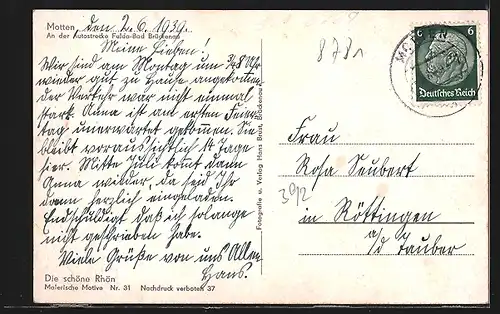 Motten
An der Autostrecke Fulda-Bad Brückenau
den 2. 6. 1939.
Meine Lieben!
Wir sind am Montag um 3/4 8 Uhr
wieder gut zu Hause angekommen,
der Verkehr war nicht einmal
stark. Anna ist am ersten Feier-
tag unerwartet gekommen. Sie
bleibt voraussichtlich 14 Tage
hier. Mitte Juli kommt dann
Anna wieder, da seid Ihr
dann herzlich eingeladen.
Endschuldigt daß ich so lange
nicht geschrieben habe.
Viele Grüße von uns Allen
Hans.
Die schöne Rhön
Malerische Motive Nr. 31 Nachdruck verboten 37
Fotografie u. Verlag Hans Brust, Brückenau
8781
6 6
Deutsches Reich
Frau
Rosa Seubert
3912
in Röttingen
a/d Tauber